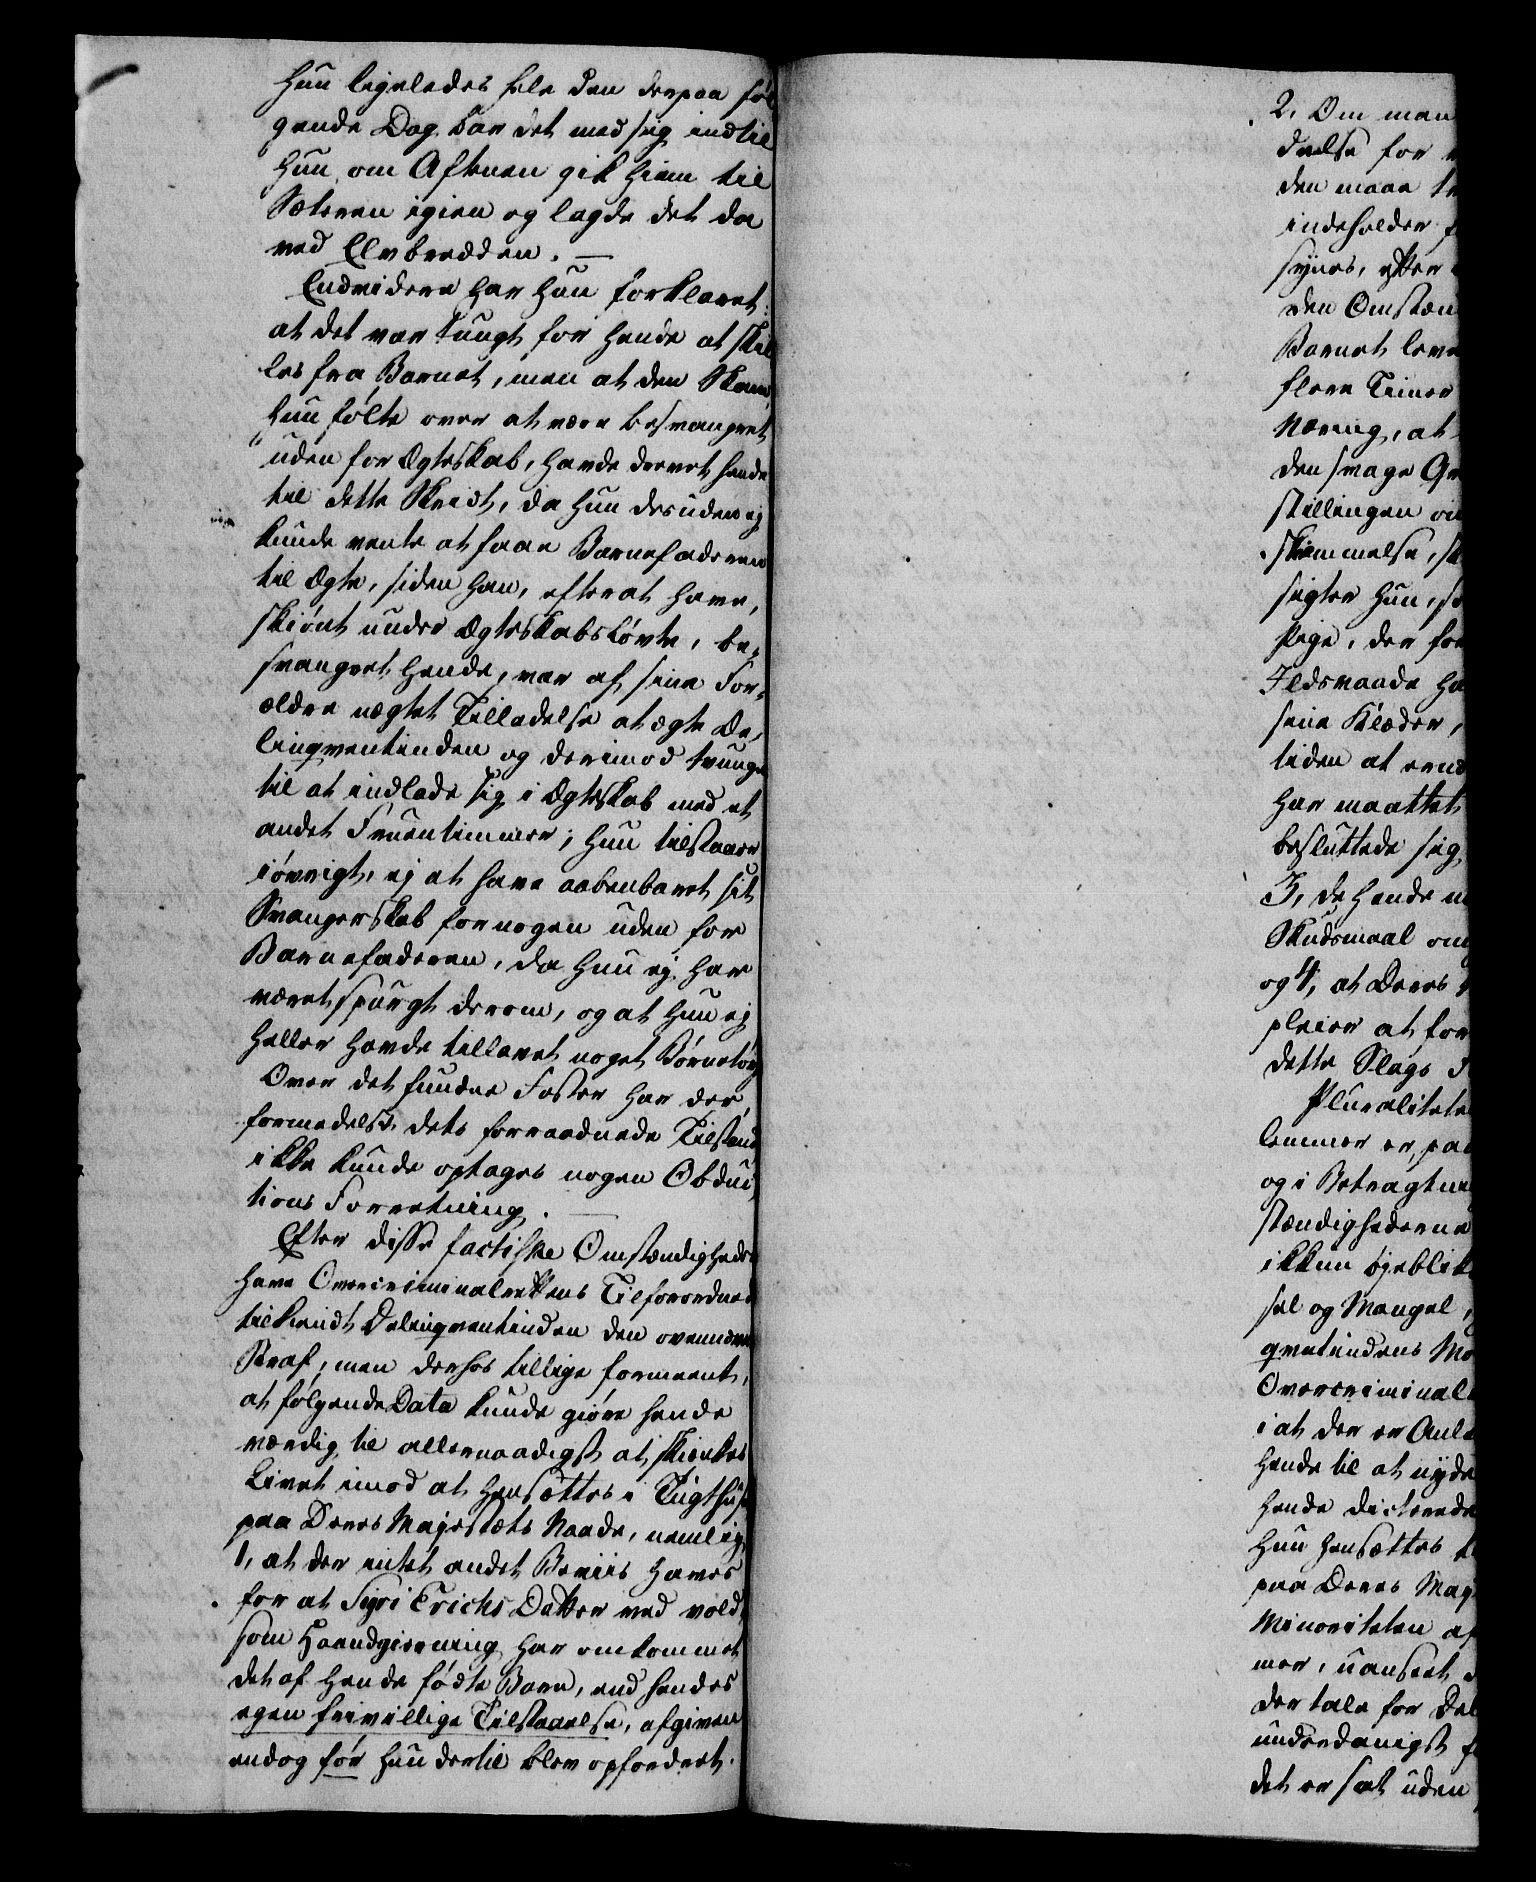 hun ligeledes hele den derpaa føl
gende Dag bar det med sig indtil
hun om Aftenen gik hiem til
Sæteren igien og lagde det da
ved Elvbredden. —
Endvidere har hun forklaret:
at det var tungt for hende at skil
les fra Barnet, men at den Skam,
hun følte over at være besvangret
uden for Ægteskab, havde drevet hende
til dette Skridt, da hun desuden ej
kunde vente at faae Barnefaderen
til Ægte, siden han, efterat have,
skiønt under Ægteskabsløvte, be-
svangret hende, var af sine For-
ældre nægtet Tilladelse at ægte De-
linqventinden og derimod tvungen
til at indlade sig i Ægteskab med et
andet Fruentimmer; hun tilstaaer
iøvrigt, ej at have aabenbaret sit
Svangerskab for nogen uden for
Barnefaderen, da hun ej har
været spurgt derom, og at hun ej
heller havde tillavet noget Børnetøy
Over det fundne Foster har der,
formedelst dets forraadnede Tilstand
ikke kunde optages nogen Obduc
tions Forretning. —
Efter disse factiske Omstændigheder
have Overcriminalrettens Tilforordnede
tilkiendt Delinqventinden den ovennævnte
Straf, men derhos tillige formeent,
at følgende Data kunde giøre hende
værdig til allernaadigst at skienkes
Livet imod at hensættes i Tugthuset
paa Deres Majestæts Naade, nemlig
1, at der intet andet Beviis haves
for at Siyri Erichs Datter ved vold
som Haandgierning har omkommet
det af hende fødte Barn, end hendes
egen frivillige Tilstaaelse, afgiven
endog før hun dertil blev opfordret.
2, Om man
delse for
den maae
indeholder
synes, efter
den Omstæn
Barnet leve
flere Timer
Næring, at
den svage
stillingen
skiemmelse,
sigter hun,
Pige, der for
Ildsvaade ha
sine Klæder,
tiden at
har maattet
besluttede sig
3, de hende
Skudsmaal om
og 4, at Deres
pleier at for
dette Slags
Pluralitete
lemmer er, paa
og i Betragtnin
stændighederne
ikkun øjeblik
sel og Mangel,
qventindens Mo
Overcriminal
i at der er Anle
hende til at nyde
hende dicterede
hun hensættes
paa Deres Maj
Minoriteten af
mer, uanseet
der tale for Del
underdanigst
det er sat uden